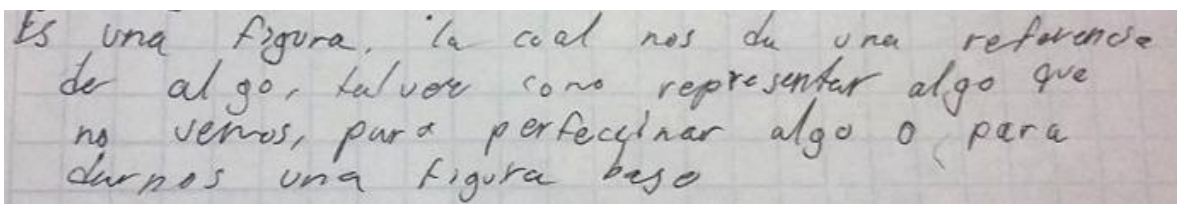 Es una figura, la cual nos da una referencia
de algo, talvez como representar algo que
no vemos, para perfeccinar algo o para
darnos una figura base